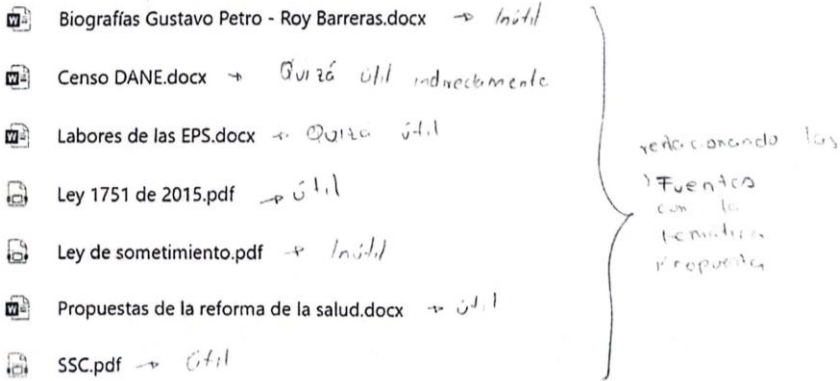 Biografías Gustavo Petro - Roy Barreras.docx → Inútil
Censo DANE.docx → Quizá útil indirectamente
Labores de las EPS.docx → Quizá útil
Ley 1751 de 2015.pdf → útil
Ley de sometimiento.pdf → Inútil
Propuestas de la reforma de la salud.docx → útil
SSC.pdf → útil
las
Fuentes
con la
temática
propuesta